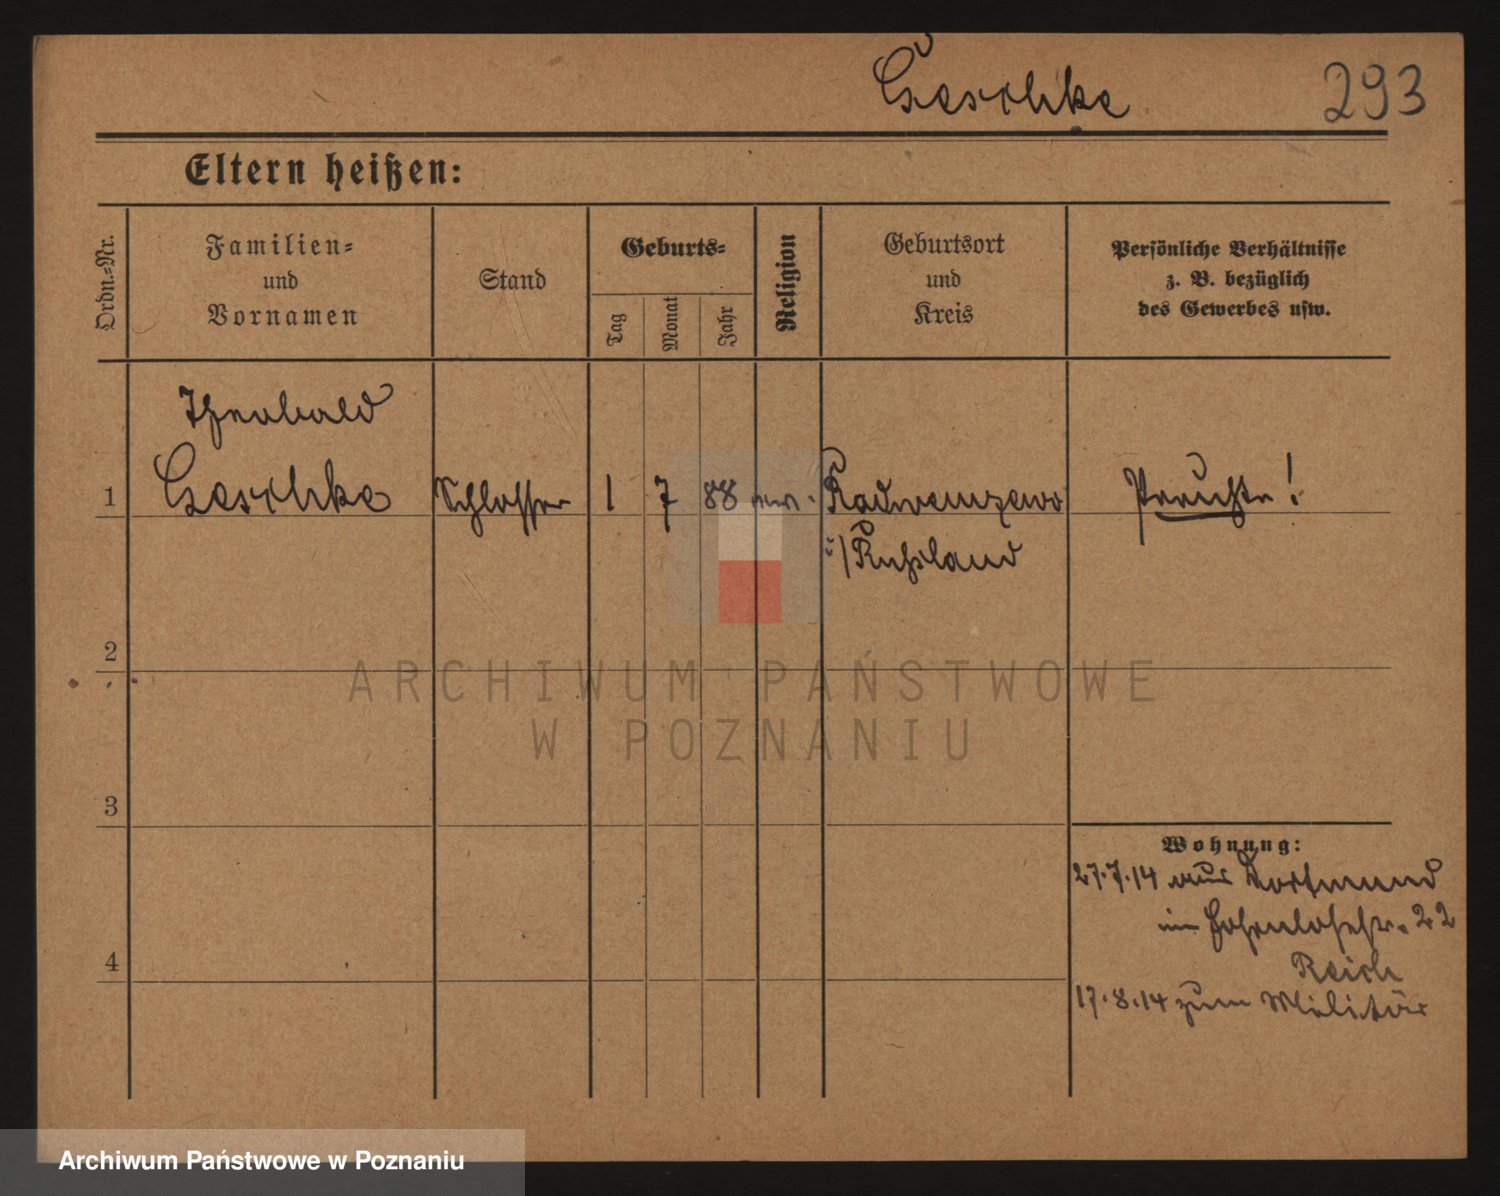 Geschke
293
Eltern heißen:
Ordn.=Nr.
Familien=
und
Vornamen
Stand
Geburts=
Tag
Monat
Jahr
Religion
Geburtsort
und
Kreis
Persönliche Verhältnisse
z. B. bezüglich
des Gewerbes usw.
Theobald
1 Geschke Schlosser 1 7 88 ev. Preuße!
i/ Russland
2
3
4
Wohnung:
27.7.14 aus Dortmund
im Hohenlohestr. 22
Reich
17.8.14 zum Militär
ARCHIWUM PAŃSTWOWE
W POZNANIU
Archiwum Państwowe w Poznaniu